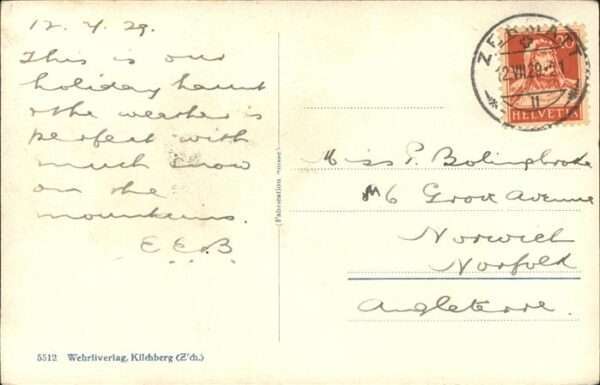 12.7.29.
This is our
holiday haunt
& the weather is
perfect with
much snow
on the
mountains.
E E. B
ZERMATT
12.VII.29.-21
II
20
HELVETIA
(Fabrication Suisse)
Miss P. Bolingbroke
6 Grove Avenue
Norwich
Norfolk
Angleterre.
5512 Wehrliverlag, Kilchberg (Z'ch.)